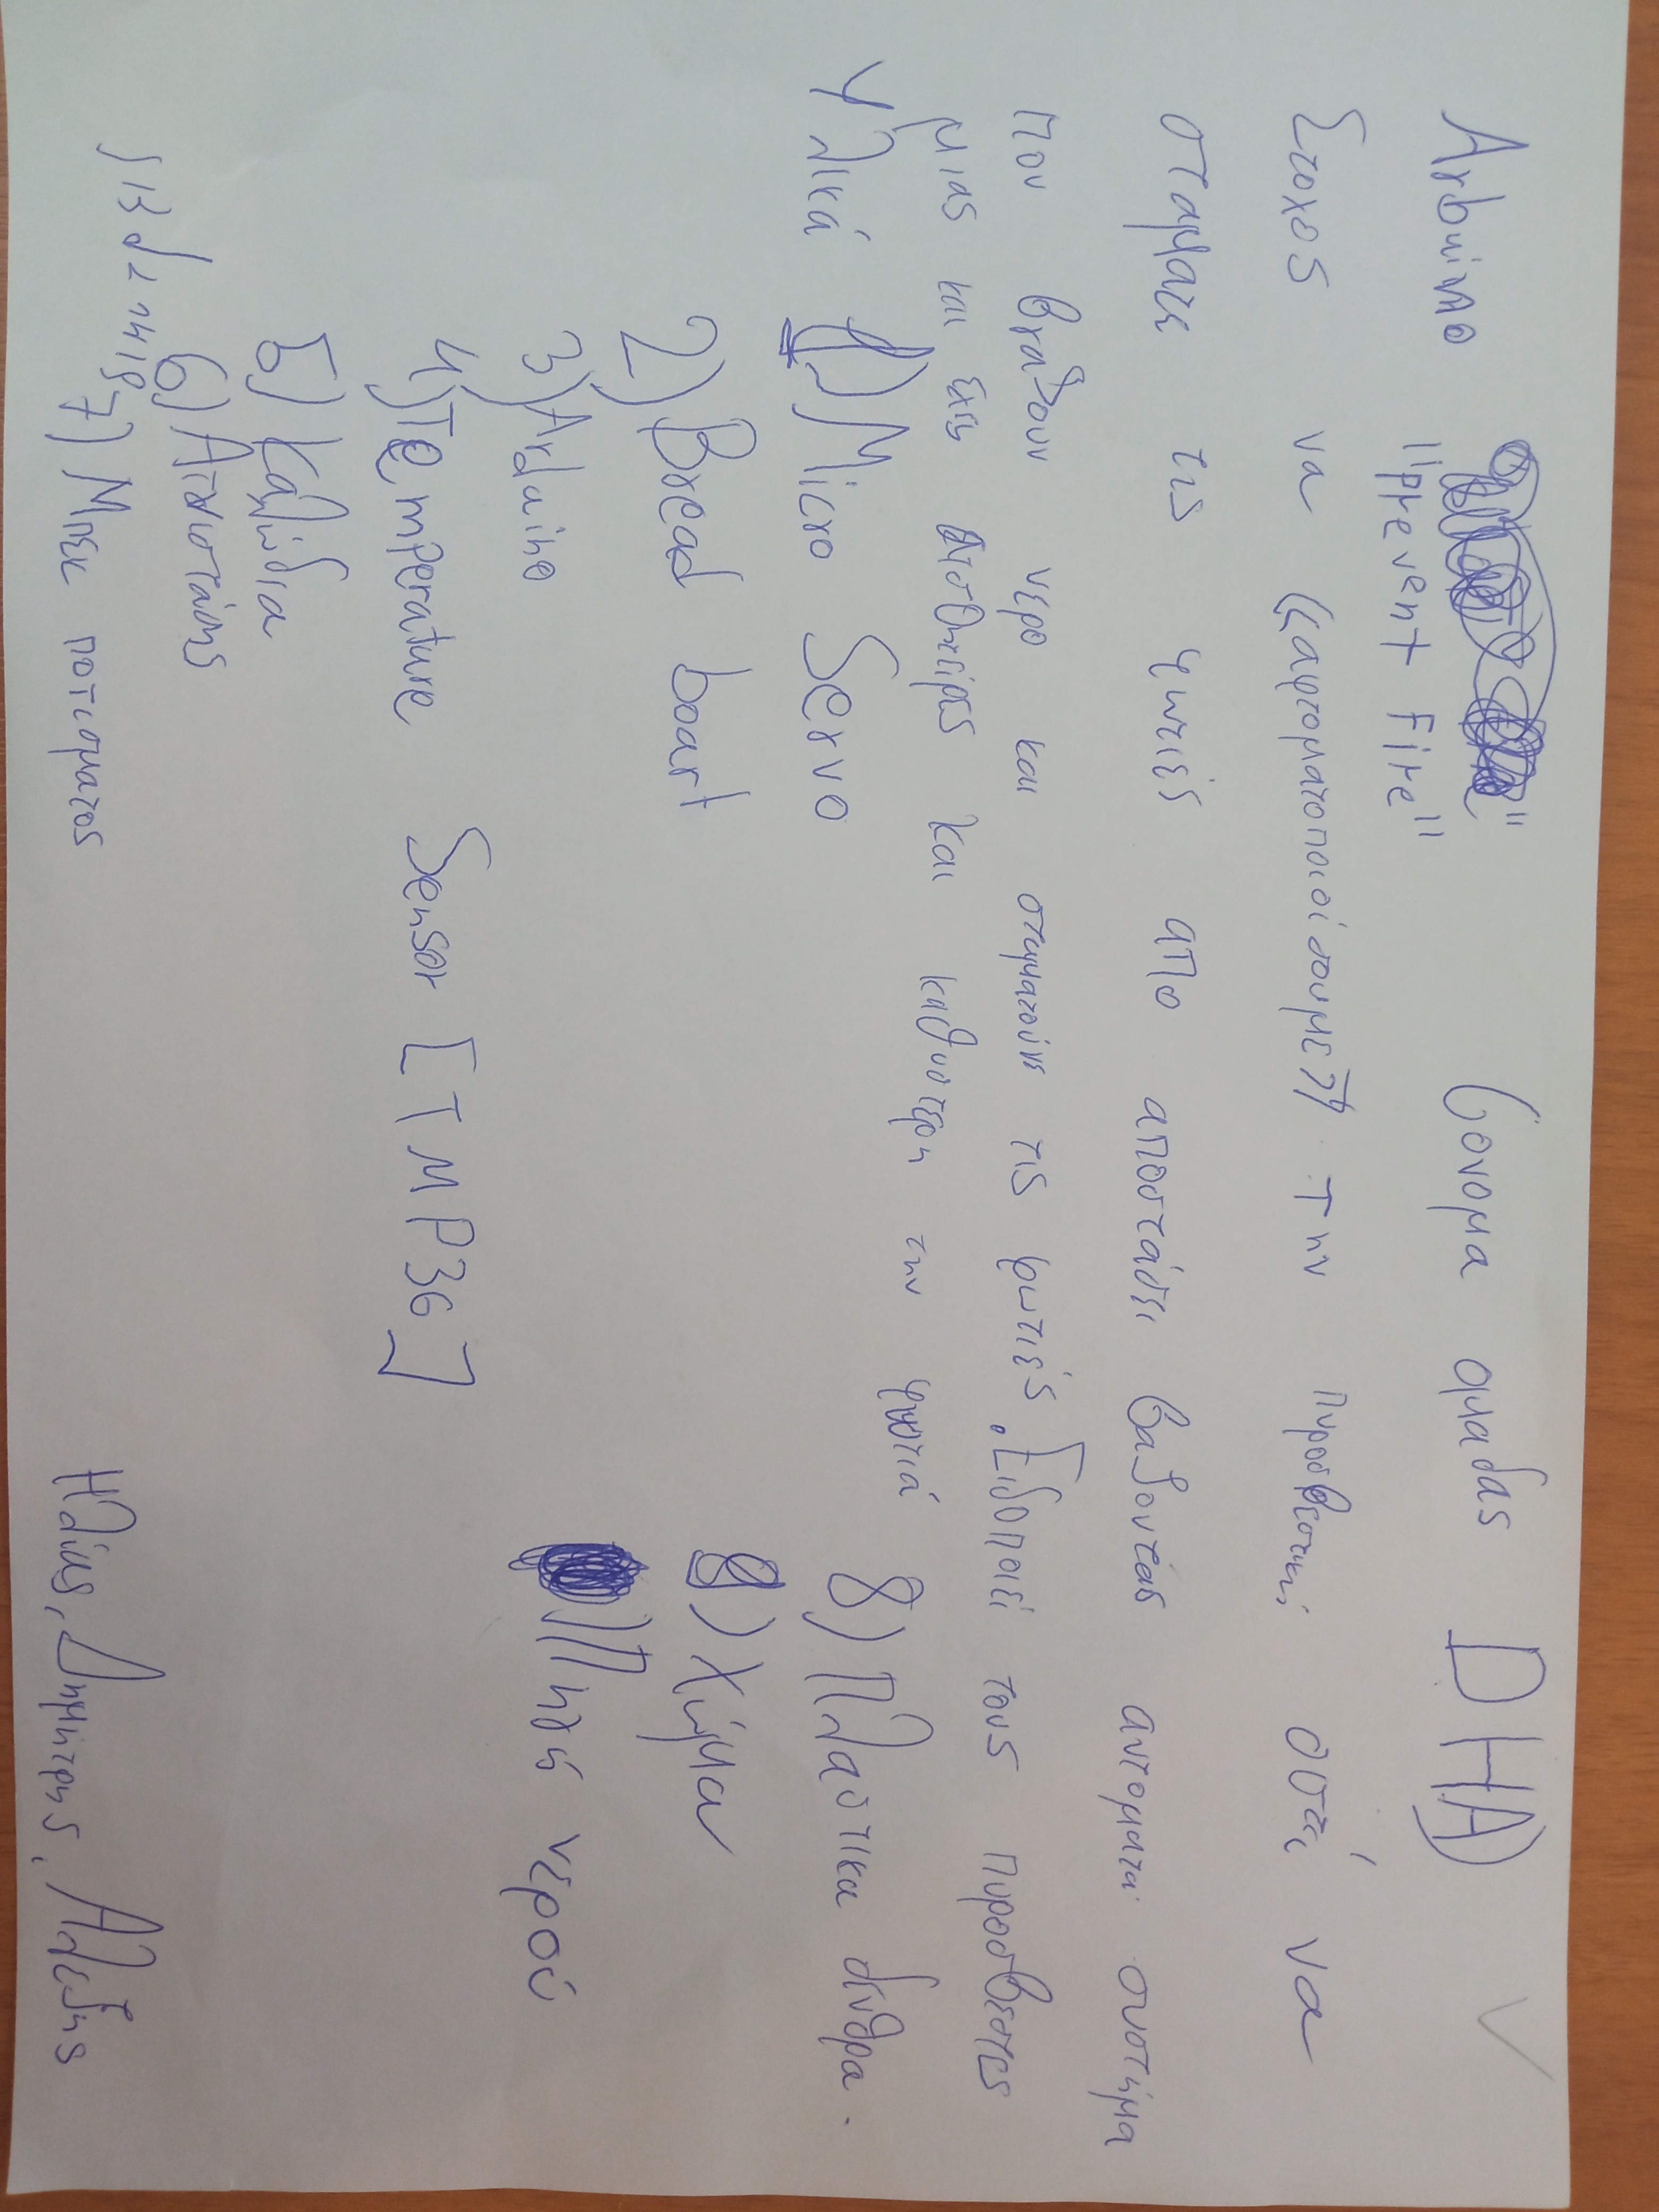 Arbuino (ονομα ομαδας DHA)
"Prevent Fire"
Στοχος να «αφτοματοποιοίσουμε» την πυροσβεστική οστέ να
σταματε τις φωτιές απο αποστάσει βαζοντάς αυτοματα συστήμα
που βγαζουν νερο και σταματούνε τις φωτιές. Ειδοποιεί τους πυροσβεστες
μιας και εχει αισθητείρες και καθυστερη την φωτιά
Υλικά 1) Micro Servo
2) Bread boart
3) Arduino
4) Temperature Sensor [TMP36]
5) Καλώδια
6) Αντιστάσης
7) Μπεκ ποτισματος
8) Πλαστικα δενδρα.
9) Χώμα
) Πηγή νερού
Ηλίας, Δημητρης, Αλεξης